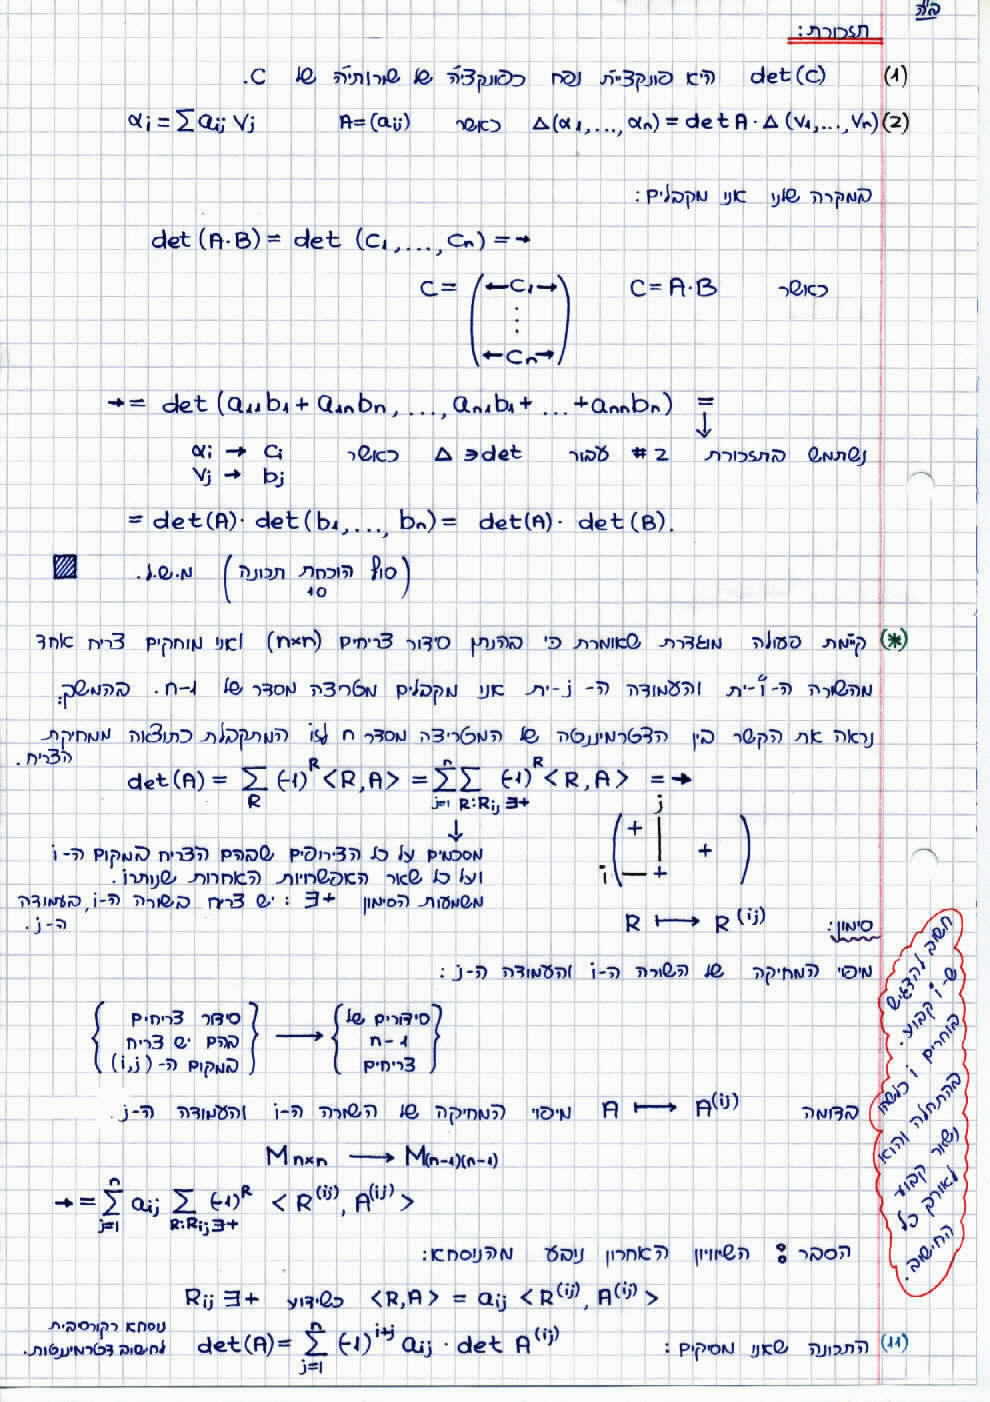 בה"
תזכורת:
(1) det(C) היא פונקציית נפח כפונקציה של שורותיה של C.
(2) Δ(α1,...,αn) = det A · Δ(V1,...,Vn) כאשר A=(aij) αi = Σ aij Vj
במקרה שלנו אנו מקבלים:
det (A·B) = det (C1,..., Cn) = →
כאשר C = A·B C = (←C1→ ⋮ ←Cn→)
→ = det (a11b1 + a1nbn,..., an1b1 + ... + annbn) =
↓
נשתמש בתזכורת #2 עבור Δ∋det כאשר αi → Ci
Vj → bj
= det(A)· det(b1,..., bn) = det(A)· det(B).
מ.ש.ל. (סוף הוכחת תכונה 10)
(*) קיימת פעולה מוגדרת שאומרת כי בהנתן סידור צריחים (n×n) ואנו מוחקים צריח אחד
מהשורה ה-i-ית והעמודה ה-j-ית אנו מקבלים מטריצה מסדר של n-1. בהמשך:
נראה את הקשר בין הדטרמיננטה של המטריצה מסדר n לזו המתקבלת כתוצאה ממחיקת
הצריח.
det(A) = Σ_R (-1)^R <R,A> = Σ_{j=1}^n Σ_{R:Rij∃+} (-1)^R <R,A> = →
↓
מסכמים על כל הצירופים שבהם הצריח במקום ה-i
ועל כל שאר האפשרויות האחרות שנותרו.
משמעות הסימון ∃+ : יש צריח בשורה ה-i, בעמודה
ה-j.
j
i ( + | + — + )
סימון: R ⟼ R^(ij)
מיפוי המחיקה של השורה ה-i והעמודה ה-j:
{סידור צריחים בהם יש צריח במקום ה-(i,j)} → {סידורים של n-1 צריחים}
בדומה A ⟼ A^(ij) מיפוי המחיקה של השורה ה-i והעמודה ה-j.
M n×n → M(n-1)(n-1)
→ = Σ_{j=1}^n aij Σ_{R:Rij∃+} (-1)^R <R^(ij), A^(ij)>
הסבר: השוויון האחרון נובע מהנוסחא:
<R,A> = aij <R^(ij), A^(ij)> כשידוע Rij ∃+
(11) התכונה שאנו מסיקים: det(A) = Σ_{j=1}^n (-1)^{i+j} aij · det A^(ij)
נוסחא רקורסבית
לחישוב דטרמיננטות.
חשוב להדגיש
ש-i קבוע.
בוחרים i כלשהו
בהתחלה והוא
נשאר קבוע
לאורך כל
החישוב.